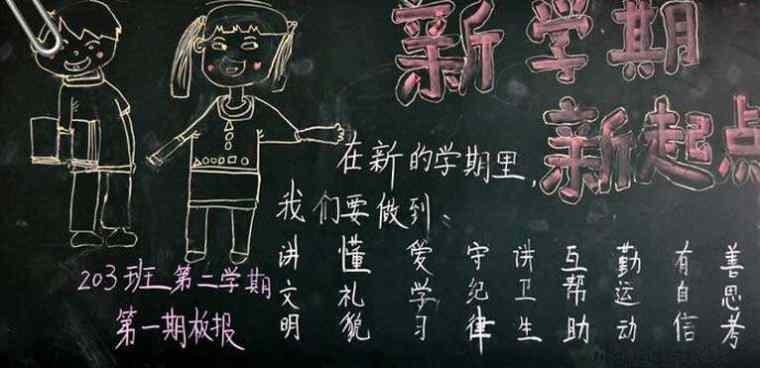 新学期
新起点
在新的学期里，
我们要做到：
讲文明
懂礼貌
爱学习
守纪律
讲卫生
互帮助
勤运动
有自信
善思考
203班第二学期
第一期板报